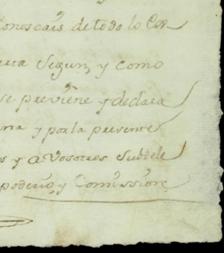 conoscais de todo lo Cor
Segun, y como
se previene y declara
y por la presente
y a Vosotros Subdele
poderio, y Comission